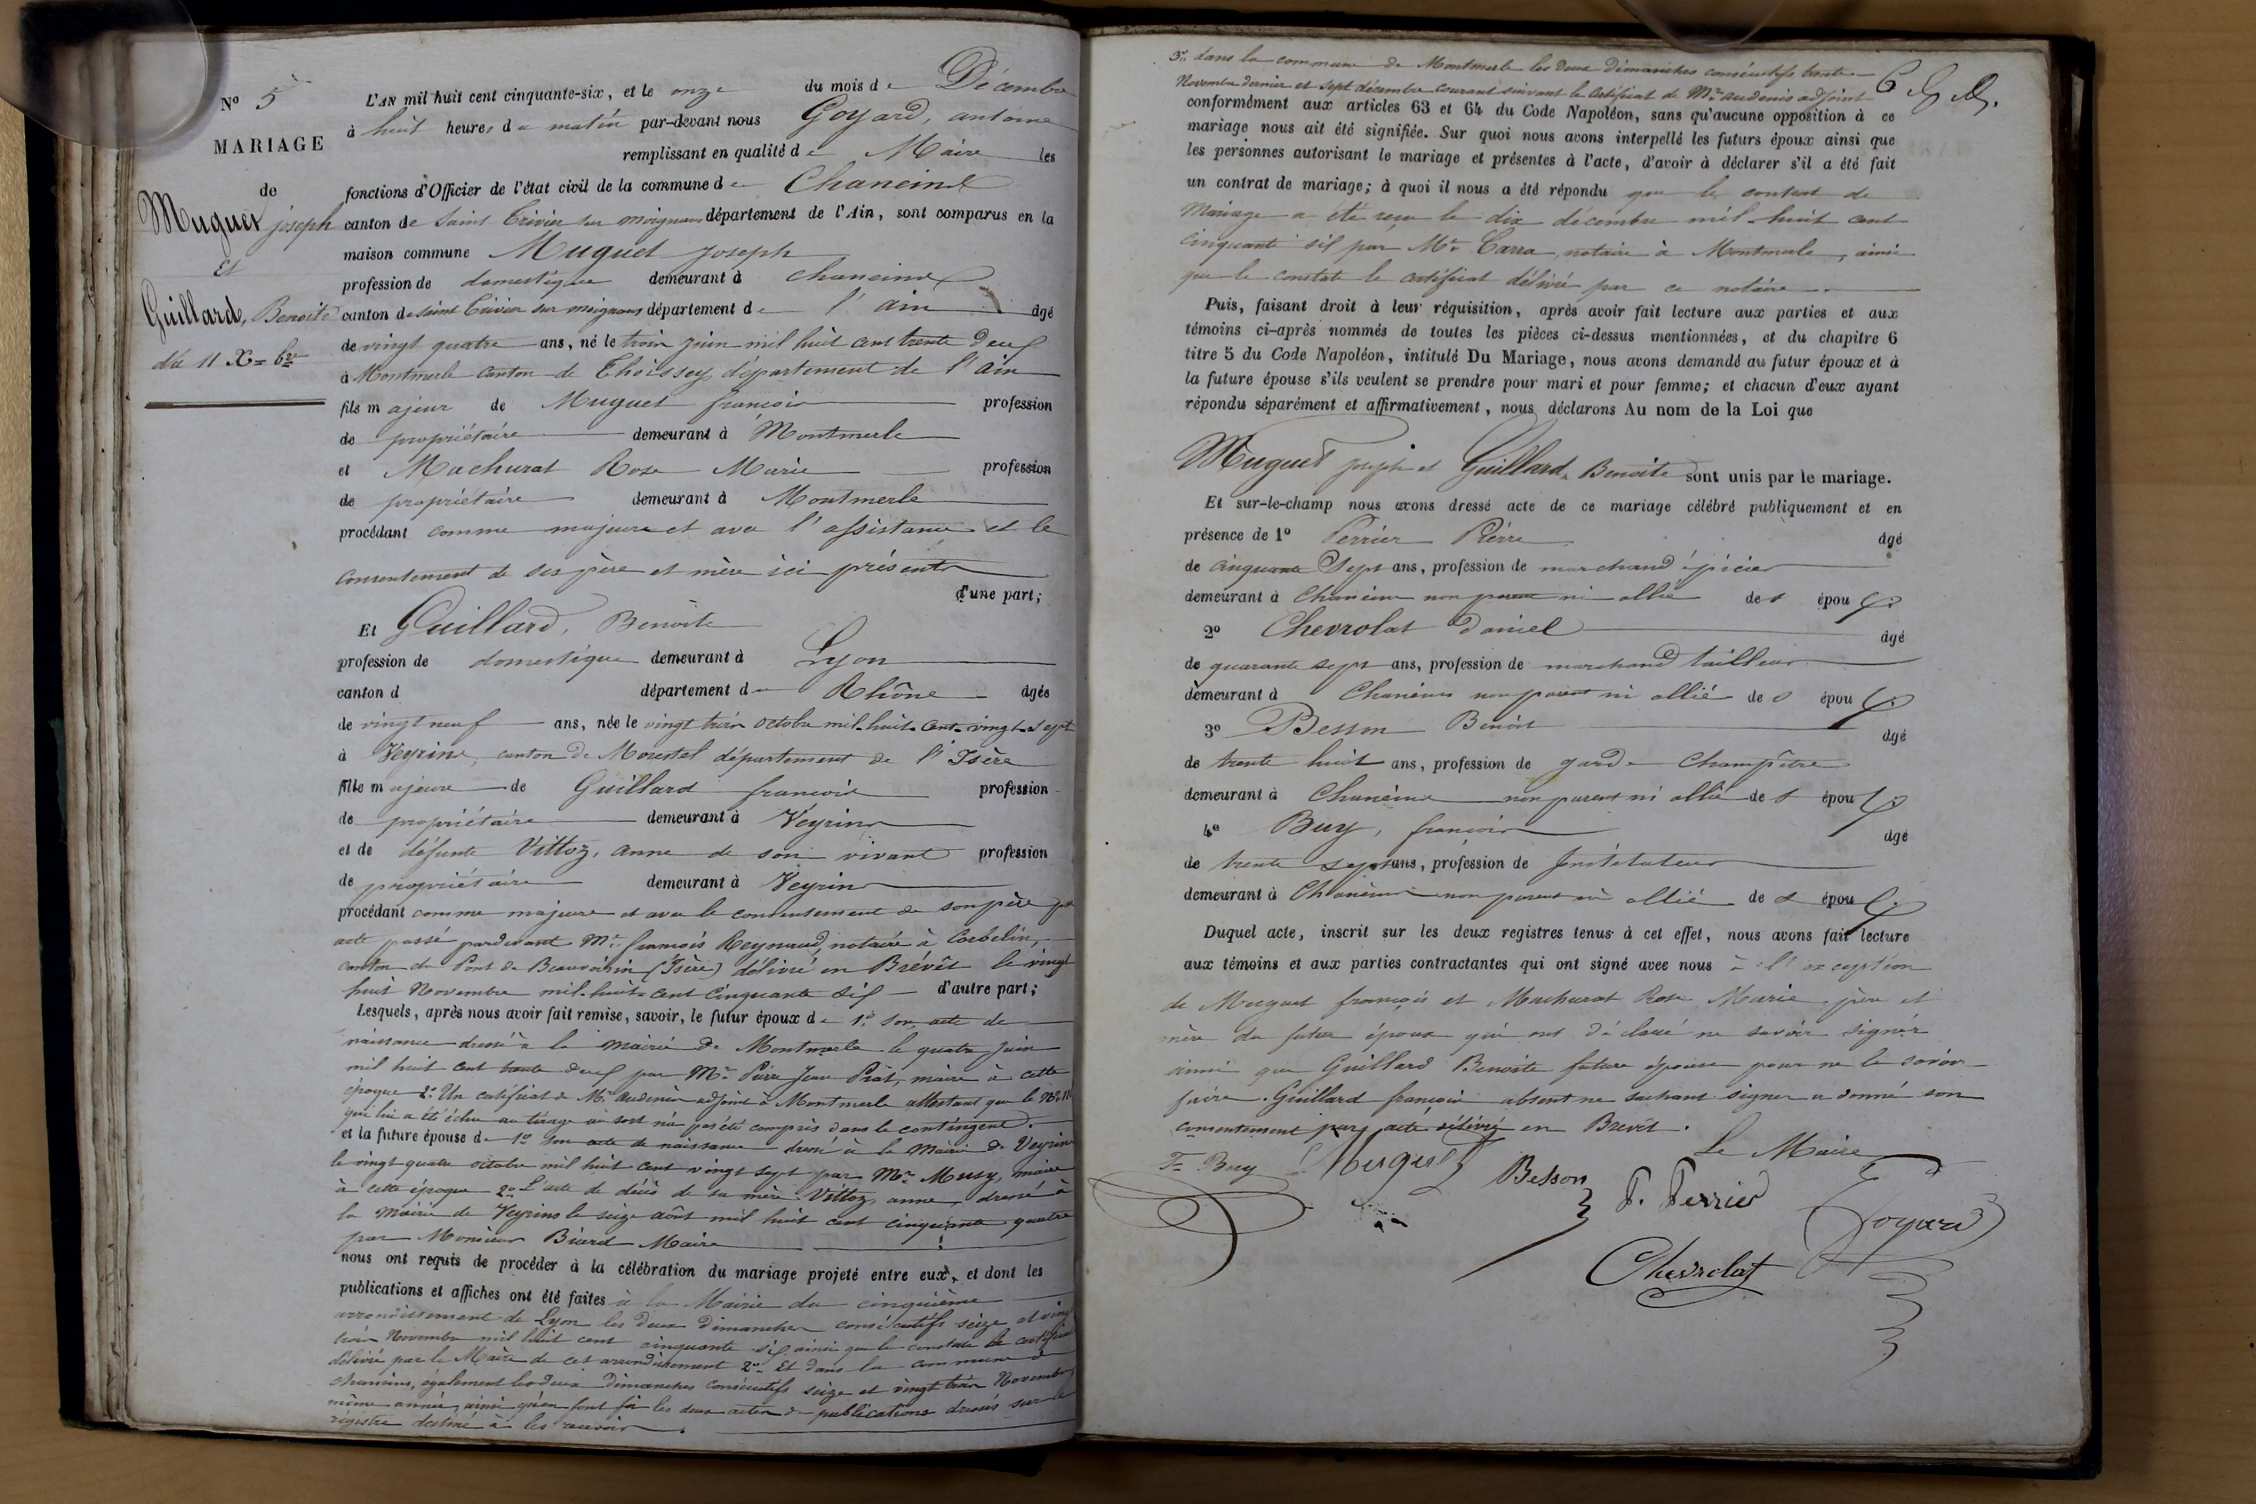 Nº 5
MARIAGE
de
Muguet joseph
Et
Guillard, Benoite
du 11 Xbre
L'AN mil huit cent cinquante-six, et le onze du mois de Décembre
à huit heures du matin par-devant nous Goyard, antoine
remplissant en qualité de Maire les
fonctions d'Officier de l'état civil de la commune de Chaneins
canton de Saint Trivier sur moignans département de l'Ain, sont comparus en la
maison commune Muguet joseph
profession de domestique demeurant à Chaneins
canton de saint Trivier sur moignans département de l'ain âgé
de vingt quatre ans, né le trois juin mil huit cent trente deux
à Montmerle canton de Thoissey, département de l'ain
fils majeur de Muguet françois profession
de propriétaire demeurant à Montmerle
et Machurat Rose Marie profession
de propriétaire demeurant à Montmerle
procédant comme majeur et avec l'assistance et le
consentement de ses père et mère ici présents
d'une part;
Et Guillard, Benoite
profession de domestique demeurant à Lyon
canton d département du Rhône âgée
de vingt neuf ans, née le vingt trois octobre mil-huit-cent-vingt-sept
à Veyrins, canton de Morestel département de l'Isère
fille majeure de Guillard francois profession
de propriétaire demeurant à Veyrins
et de défunte Vittoz, anne de son vivant profession
de propriétaire demeurant à Veyrins
procédant comme majeure et avec le consentement de son père par
acte passé pardevant Me. françois Reynaud, notaire à Corbelin,
canton du Pont de Beauvoisin (Isère) délivré en Brévêt le vingt
huit Novembre mil-huit-cent cinquante six d'autre part;
Lesquels, après nous avoir fait remise, savoir, le futur époux de 1º. son acte de
naissance dressé à la mairie de Montmerle le quatre juin
mil huit cent trente deux par Mr. Pierre Jean Priat, maire à cette
époque 2º. Un certificat de Mr. audenis adjoint à Montmerle attestant que le Nº
qui lui a été échu au tirage au sort n'a pas été compris dans le contingent.
et la future épouse de 1º son acte de naissance dressé à la Mairie de Veyrins
le vingt quatre octobre mil huit cent vingt sept par Mr. Musy, maire
à cette époque 2º L'acte de décès de sa mère Vittoz, anne, dressé à
la mairie de Veyrins le seize août mil huit cent cinquante quatre
par Monsieur Biard Maire
nous ont requis de procéder à la célébration du mariage projeté entre eux, et dont les
publications et affiches ont été faites à la Mairie du cinquième
arrondissement de Lyon les deux dimanches consécutifs seize et vingt
trois Novembre mil huit cent cinquante six ainsi que le constate le certificat
délivré par le Maire de cet arrondissement 2º. Et dans la commune de
Chaneins, également les deux Dimanches consécutifs seize et vingt trois Novembre
même année, ainsi qu'en font foi les deux actes de publications dressés sur le
régistre destiné à les recevoir.
3º. dans la commune de Montmerle les deux dimanches consécutifs trente
Novembre dernier et sept décembre courant suivant le certificat de Mr. audenis adjoint
conformément aux articles 63 et 64 du Code Napoléon, sans qu'aucune opposition à ce
mariage nous ait été signifiée. Sur quoi nous avons interpellé les futurs époux ainsi que
les personnes autorisant le mariage et présentes à l'acte, d'avoir à déclarer s'il a été fait
un contrat de mariage; à quoi il nous a été répondu que le contrat de
Mariage a été reçu le dix décembre mil-huit cent
cinquante six par Me. Carra, notaire à Montmerle, ainsi
que le constate le certificat délivré par ce notaire.
Puis, faisant droit à leur réquisition, après avoir fait lecture aux parties et aux
témoins ci-après nommés de toutes les pièces ci-dessus mentionnées, et du chapitre 6
titre 5 du Code Napoléon, intitulé Du Mariage, nous avons demandé au futur époux et à
la future épouse s'ils veulent se prendre pour mari et pour femme; et chacun d'eux ayant
répondu séparément et affirmativement, nous déclarons Au nom de la Loi que
Muguet joseph et Guillard, Benoite sont unis par le mariage.
Et sur-le-champ nous avons dressé acte de ce mariage célébré publiquement et en
présence de 1º Perrier Pierre âgé
de cinquante Sept ans, profession de marchand épicier
demeurant à Chaneins non parent ni allié des époux
2º Chevrolat Daniel âgé
de quarante sept ans, profession de marchand tailleur
demeurant à Chaneins non parent ni allié des époux
3º Besson Benoit âgé
de trente huit ans, profession de garde Champêtre
demeurant à Chaneins non parent ni allié des époux
4º Buy, françois âgé
de trente sept ans, profession de Instituteur
demeurant à Chaneins non parent ni allié des époux
Duquel acte, inscrit sur les deux registres tenus à cet effet, nous avons fait lecture
aux témoins et aux parties contractantes qui ont signé avec nous à l'exception
de Muguet françois et Machurat Rose Marie père et
mère du futur époux qui ont déclaré ne savoir signer
ainsi que Guillard Benoite future épouse pour ne le savoir
faire. Guillard françois absent ne sachant signer a donné son
consentement par acte délivré en Brevet.
Le Maire
F. Buy Muguet Besson P. Perrier Goyard
Chevrolat